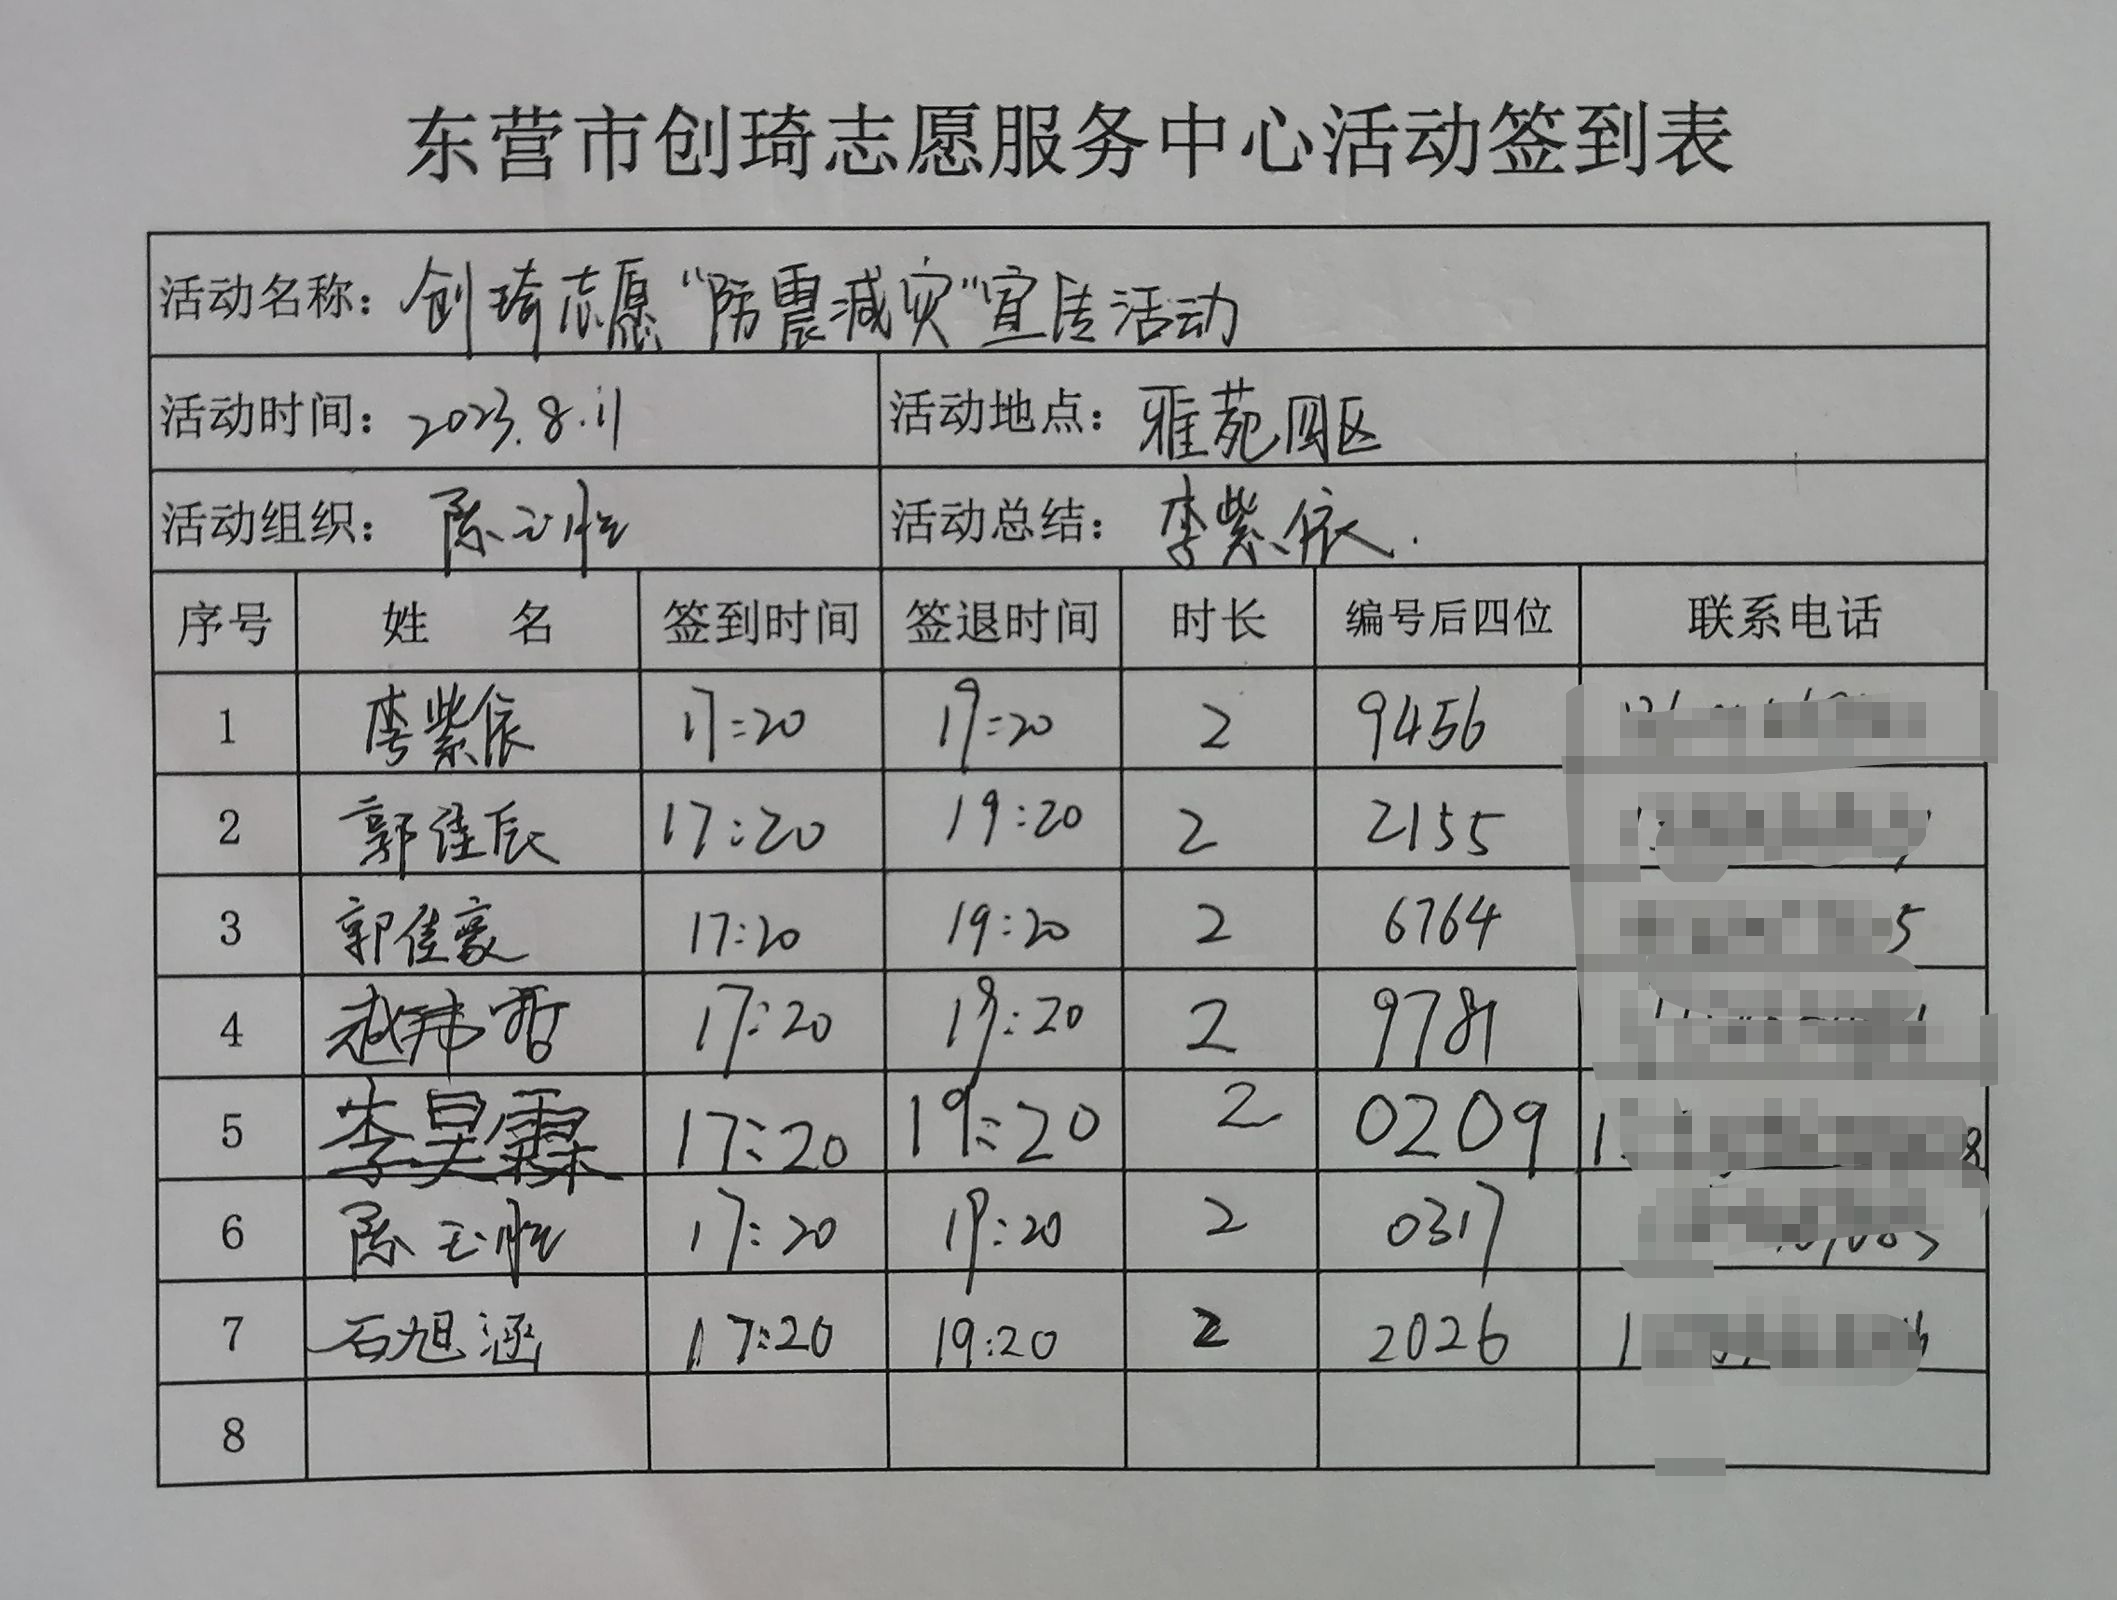 东营市创琦志愿服务中心活动签到表
活动名称：创琦志愿“防震减灾”宣传活动
活动时间：2023.8.11 活动地点：雅苑四区
活动组织：陈玉胜 活动总结：李紫依.
序号 姓 名 签到时间 签退时间 时长 编号后四位 联系电话
1 李紫依 17:20 19:20 2 9456
2 郭佳辰 17:20 19:20 2 2155
3 郭佳豪 17:20 19:20 2 6764
4 赵玮哲 17:20 19:20 2 9781
5 李昊霖 17:20 19:20 2 0209
6 陈玉胜 17:20 19:20 2 0317
7 石旭涵 17:20 19:20 2 2026
8